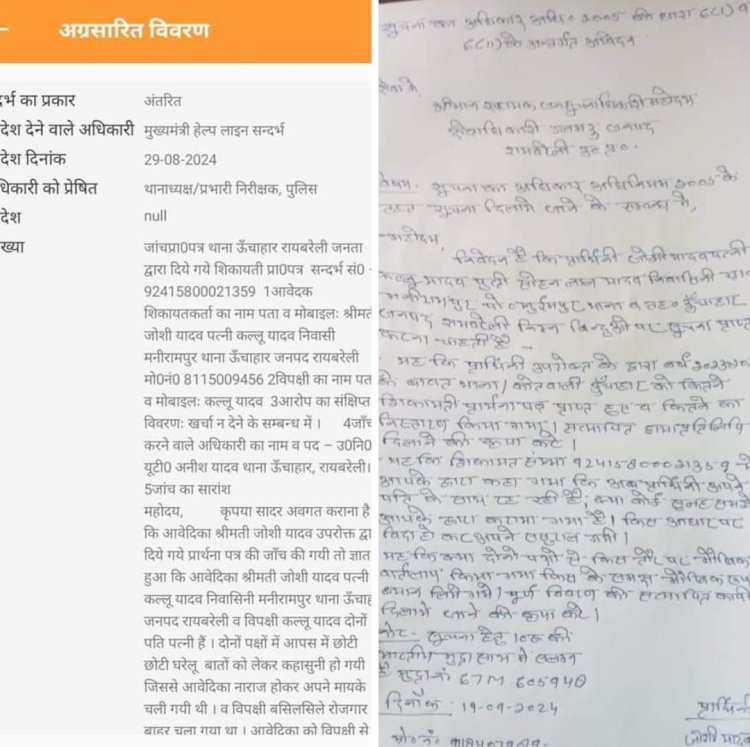 अग्रसारित विवरण
र्भ का प्रकार अंतरित
देश देने वाले अधिकारी मुख्यमंत्री हेल्प लाइन सन्दर्भ
देश दिनांक 29-08-2024
धिकारी को प्रेषित थानाध्यक्ष/प्रभारी निरीक्षक, पुलिस
देश null
ख्या जांचप्रा0पत्र थाना ऊँचाहार रायबरेली जनता
द्वारा दिये गये शिकायती प्रा0पत्र सन्दर्भ सं0 -
92415800021359 1आवेदक
शिकायतकर्ता का नाम पता व मोबाइलः श्रीमत
जोशी यादव पत्नी कल्लू यादव निवासी
मनीरामपुर थाना ऊँचाहार जनपद रायबरेली
मो0नं0 8115009456 2विपक्षी का नाम पत
व मोबाइलः कल्लू यादव 3आरोप का संक्षिप्त
विवरणः खर्चा न देने के सम्बन्ध में । 4जाँच
करने वाले अधिकारी का नाम व पद – उ0नि0
यूटी0 अनीश यादव थाना ऊँचाहार, रायबरेली।
5जांच का सारांश
महोदय, कृपया सादर अवगत कराना है
कि आवेदिका श्रीमती जोशी यादव उपरोक्त द्वा
दिये गये प्रार्थना पत्र की जाँच की गयी तो ज्ञात
हुआ कि आवेदिका श्रीमती जोशी यादव पत्नी
कल्लू यादव निवासिनी मनीरामपुर थाना ऊँचाह
जनपद रायबरेली व विपक्षी कल्लू यादव दोनों
पति पत्नी हैं । दोनों पक्षों में आपस में छोटी
छोटी घरेलू बातों को लेकर कहासुनी हो गयी
जिससे आवेदिका नाराज होकर अपने मायके
चली गयी थी । व विपक्षी बसिलसिले रोजगार
बाहर चला गया था । आवेदिका को विपक्षी से
सूचना का अधिकार अधि० 2005 की धारा 6(1) व
6(1) के अन्तर्गत आवेदन
सेवा में,
श्रीमान सहायक जनसूचनाधिकारी महोदय
जनपद
रायबरेली उ०प्र०
विषय- सूचना का अधिकार अधिनियम 2005 के
तहत सूचना दिलाये जाने के सम्बन्ध में,
महोदय,
निवेदन है कि प्रार्थिनी जोशी यादव पत्नी
कल्लू यादव पुत्री मोहन लाल यादव निवासिनी ग्राम
मनीरामपुर पो० थाना व तह० ऊँचाहार
जनपद रायबरेली निम्न बिन्दुओं पर सूचना प्राप्त
करना चाहती है -
यह कि प्रार्थिनी उपरोक्त के द्वारा वर्ष
के बावत थाना/कोतवाली ऊँचाहार को कितने
शिकायती प्रार्थना पत्र प्राप्त हुए व कितने का
निस्तारण किया गया। सत्यापित छायाप्रतिलिपि
दिलाने की कृपा करें।
यह कि शिकायत संख्या 92415800021359 में
आपके द्वारा कहा गया कि अब प्रार्थिनी अपने
पति के साथ रह रही है, क्या कोई सुलह समझौ
आपके द्वारा कराया गया है। किस आधार पर
विदा हो कर अपने ससुराल गयी।
यह कि क्या दोनों पक्षों से किस तौर पर मौखिक
वार्तालाप किया गया किस के समक्ष मौखिक रूप
बयान लिये गये। पूर्ण विवरण की सत्यापित कापी
दिलाये जाने की कृपा करें।
नोट- सूचना हेतु 10रु की
भारतीय मुद्रा साथ में संलग्न
है मुद्रा नं 67M 605940
दिनाँक: 19-09-2024 प्रार्थिनी
मो०नं० जोशी यादव